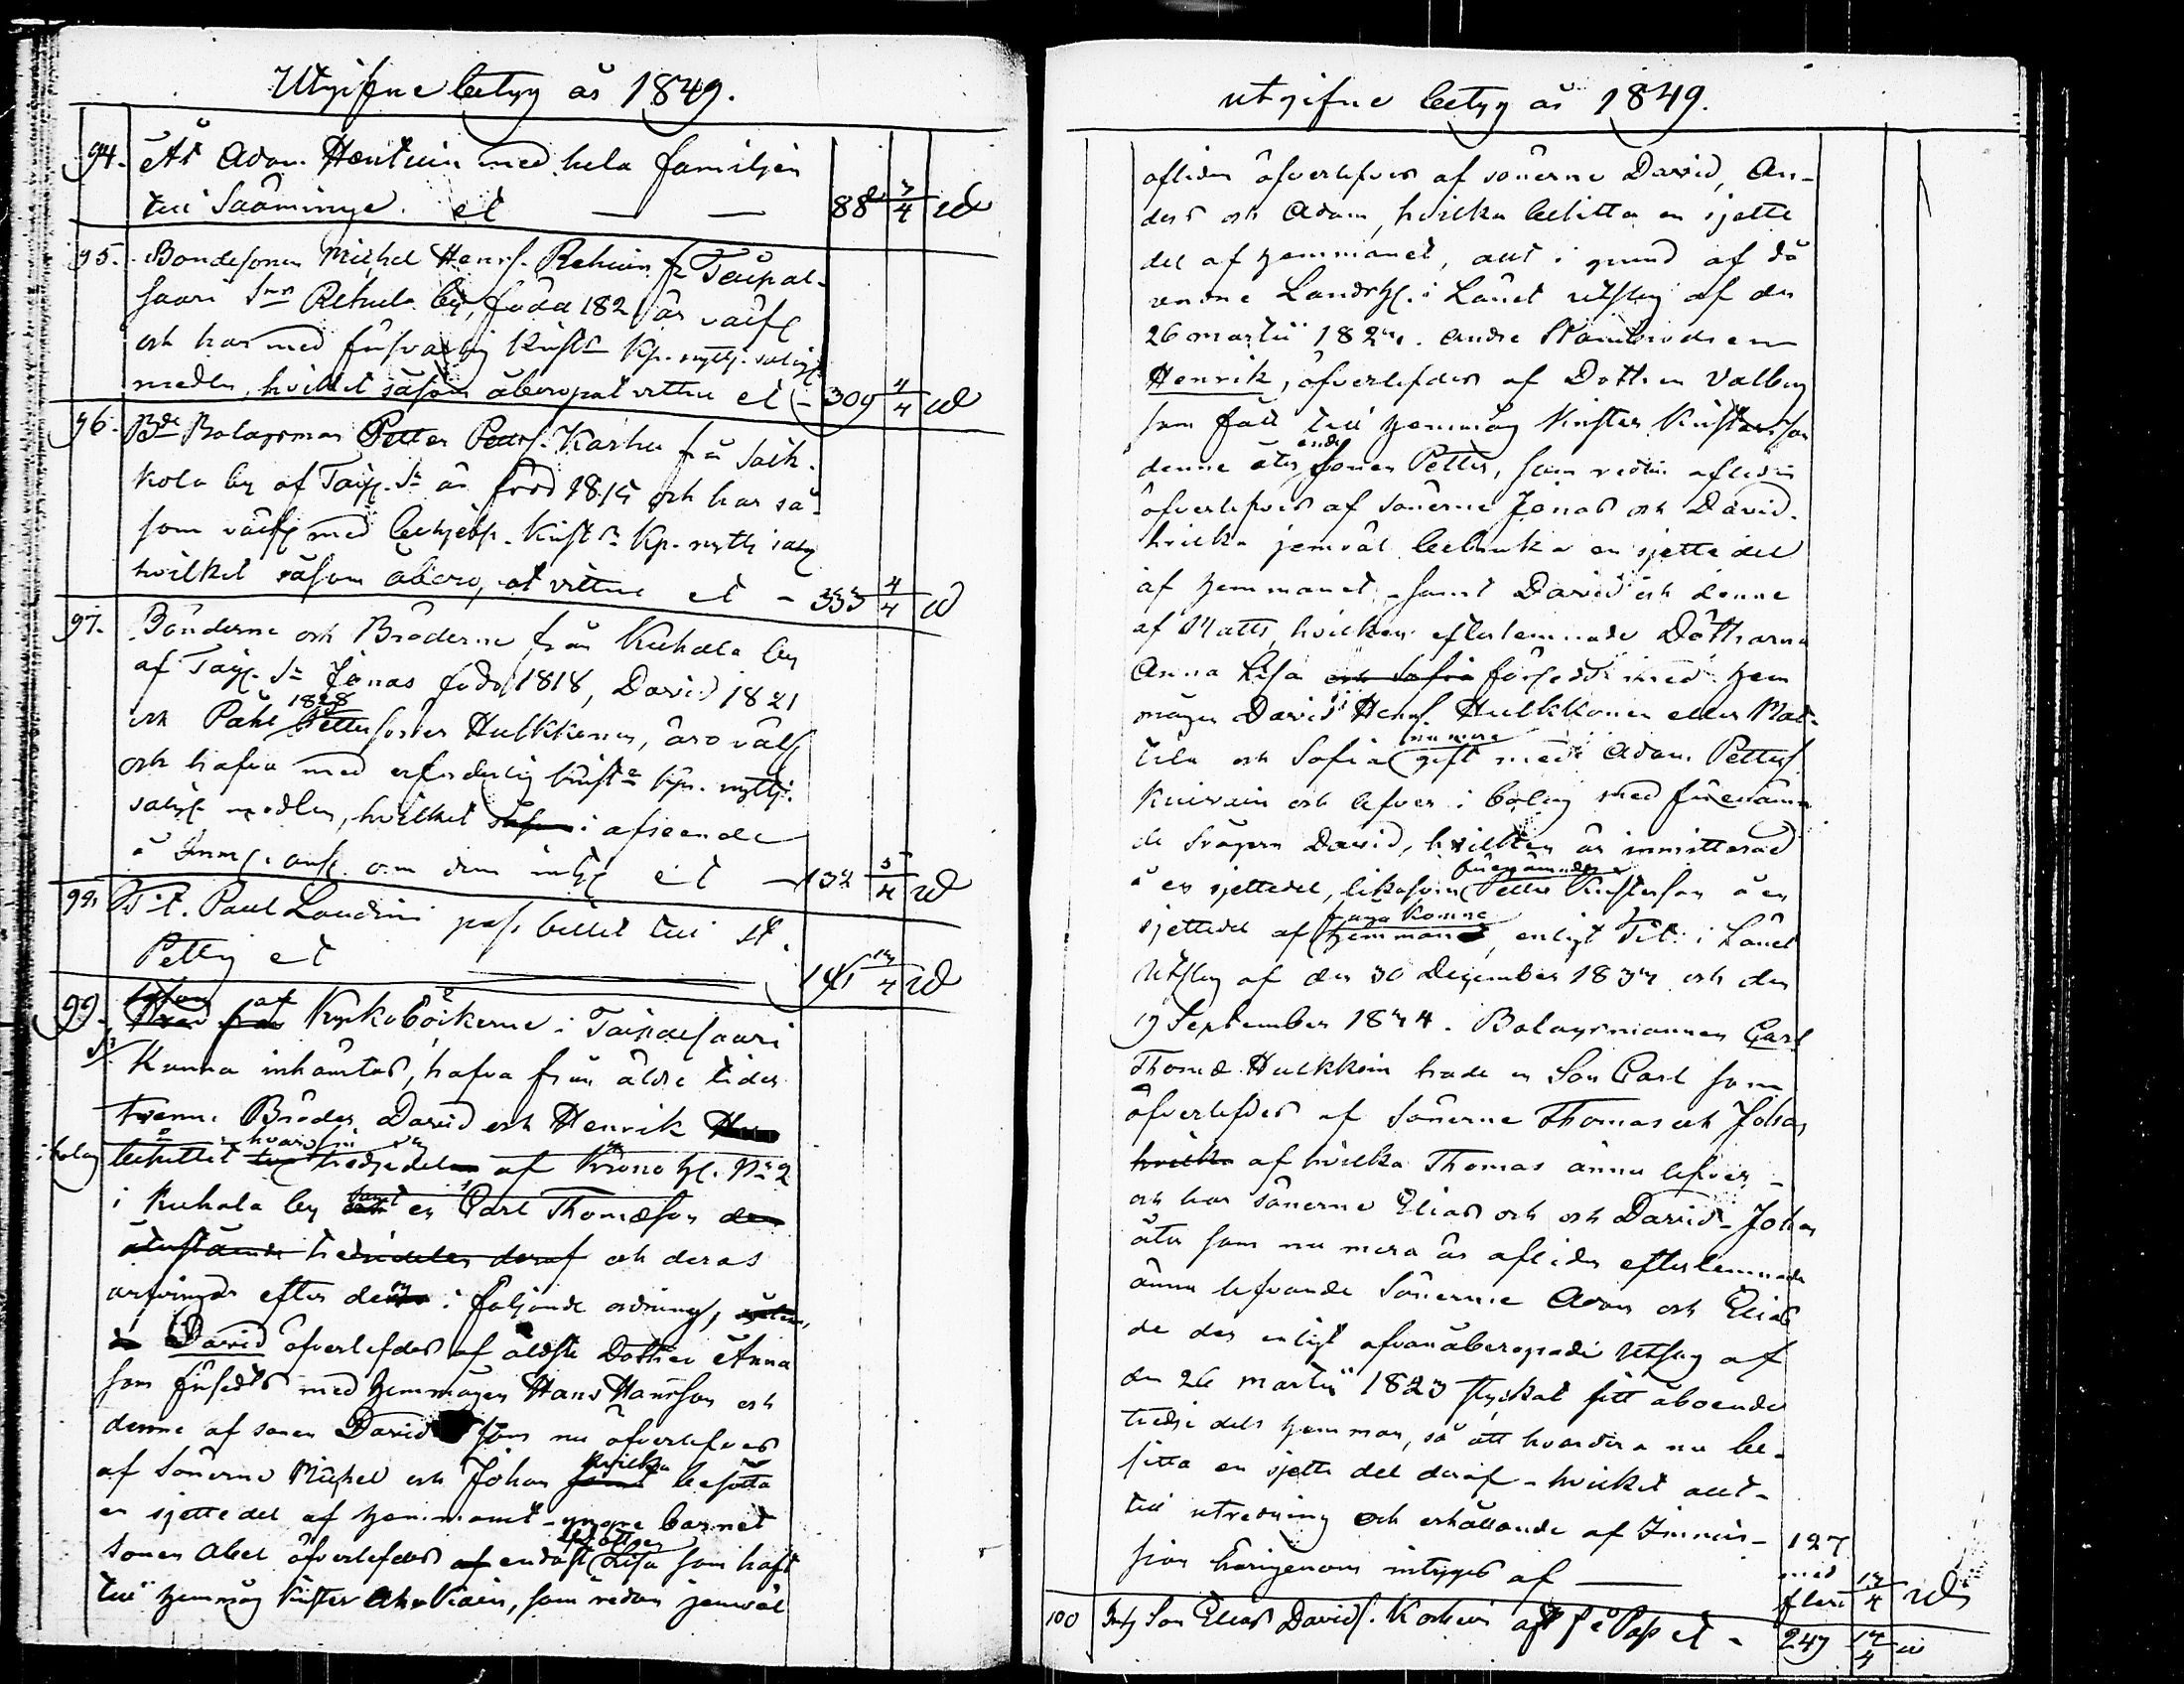 Utgifne betyg år 1849.
94. Åt Adam Hentuin med hela familjen
till Sääminge. et — — 88 3/4
95. Bondesonen Michel Henrs. Rehuin fr Taipal-
saari Sn Rehula by, född 1821 är välfr
och har med försvarlig Krist. Kp. nyttj. salig.
medlen, hvilket såsom åberopat vittne et - 309 4/4
96. Bde Bolagsman Petter Petters. Karhu från Saik-
kola by af Taip. Sn är född 1815 och har så-
som välfr med Krist. Kp. nyttj salig
hvilket såsom åberopat vittne et - 333 4/4
97. Bönderne och Bröderne från Kuhala by
af Taip. Sn Jonas född 1818, David 1821
och Påhl 1828 Petterssöner Hulkkonen, äro välfr
och hafva med erforderlig Krist. Kp. nyttj.
salig. medlen, hvilket såsom i afseende
å ans. om dem intyg et - 132 5/4
98. Tit. Paul Laudini pass billet till St.
Petbg et 141 13/4
99. Kyrkoböckerne i Taipalsaari
Sn
Kunna inhämtas, hafva från äldre tider
tvenne Bröder David och Henrik
i bolag besuttit hvarsin tredjedel af Krono H. No 2
i Kuhala by samt en Carl Thomæson den
återstående tredjedelen deraf och deras
arfvingar efter dem i följande ordning,
David öfverlefdes af äldste Dottren Anna
som försedts med hemmågen Hans Hansson och
denne af sonen David som nu öfverlefves
af Sönerne Michel och Johan hvilka besitta
en sjettedel af hemmanet - yngre barnet
sonen Abel öfverlefdes af endast dottren Lisa som haft
till hemmåg Krister Ahvkain, som redan jemväl
utgifne betyg år 1849.
afliden öfverlefves af sönerne David, An-
ders och Adam, hvilka besitta en sjette
del af hemmanet, allt i grund af då
varande Landsh. i Länet utslag af den
26 martii 1823. Andre Stambrodren
Henrik, öfverlefdes af Dottren Valborg
som fått till hemmåg Krister Kristersson
denne åter enda sonen Petter, som redan afliden
öfverlefves af sönerne Jonas och David
hvilka jemväl bebruka en sjette del
af hemmanet, samt David och denne
af Matts, hvilken efterlemnade Döttrarna
Anna Lisa och Sofia försedd med hem
mågen David Henrs. Hulkkonen eller Mat-
tila och Sofia nu mera gift med Adam Petters.
Kuivain och lefver i bolag med förenämn
de svågern David, hvilken är inmitterad
å en sjettedel, likasom förenämnde Petter Kristerson å en
sjettedel af hemmanet, enligt Tit: i Länet
Utslag af den 30 December 1837 och den
19 September 1844. Bolagsmannen Carl
Thomæ Hulkkoin hade en Son Carl som
öfverlefdes af Sönerne Thomas och Johan
hvilka af hvilka Thomas ännu lefver -
och har sönerne Elias och och David - Johan
åter som nu mera är afliden efterlemnade
ännu lefvande Sönerne Adam och Elias
de der enligt ofvanåberopade Utslag af
den 26 martii 1823 styckat sitt åboende
tredje dels hemman, så att hvardera nu be-
sitta en sjette del deraf - hvilket allt -
till utredning och erhållande af Immis-
sion härigenom intygas af —— 127 med flere 13/4
100 Son Elias Davids. Koskuin Pass et - 247 17/4